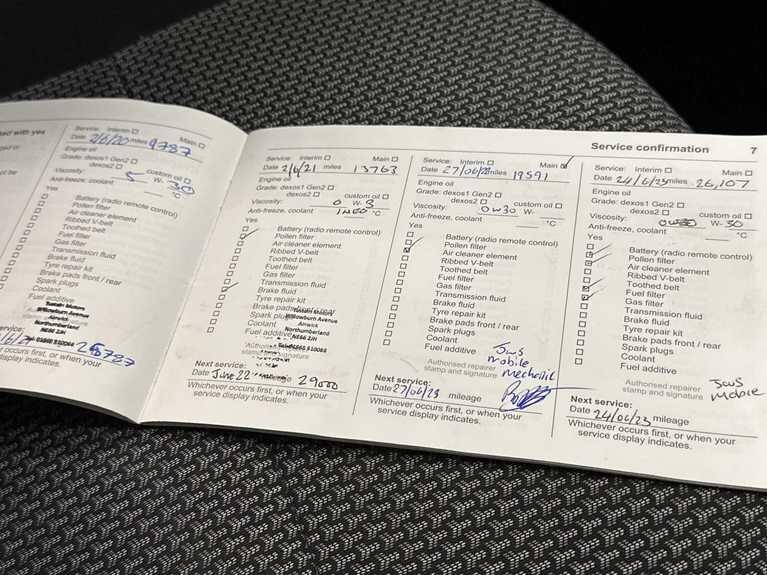 Service confirmation 7
Service: Interim Main
Date 2/6/20 miles 9787
Engine oil
Grade: dexos1 Gen2
dexos2 custom oil
Viscosity: 5 W- 30
Anti-freeze, coolant °C
Yes
Battery (radio remote control)
Pollen filter
Air cleaner element
Ribbed V-belt
Toothed belt
Fuel filter
Gas filter
Transmission fluid
Brake fluid
Tyre repair kit
Brake pads front / rear
Spark plugs
Coolant
Fuel additive
Willowburn Avenue
Alnwick
Northumberland
NE66 2JH
occurs first, or when your
service display indicates.
Service: Interim Main
Date 2/6/21 miles 13763
Engine oil
Grade: dexos1 Gen2
dexos2 custom oil
Viscosity: 0 W-
Anti-freeze, coolant °C
Yes
Battery (radio remote control)
Pollen filter
Air cleaner element
Ribbed V-belt
Toothed belt
Fuel filter
Gas filter
Transmission fluid
Brake fluid
Tyre repair kit
Brake pads front / rear
Spark plugs
Coolant
Fuel additive
Willowburn Avenue
Alnwick
Northumberland
NE66 2JH
Authorised repairer
stamp and signature
Next service:
Date June 22 mileage 29000
Whichever occurs first, or when your
service display indicates.
Service: Interim Main
Date 27/06/22 miles 19591
Engine oil
Grade: dexos1 Gen2
dexos2 custom oil
Viscosity: 0w30 W-
Anti-freeze, coolant °C
Yes
Battery (radio remote control)
Pollen filter
Air cleaner element
Ribbed V-belt
Toothed belt
Fuel filter
Gas filter
Transmission fluid
Brake fluid
Tyre repair kit
Brake pads front / rear
Spark plugs
Coolant
Fuel additive
JWS
mobile
mechanic
Authorised repairer
stamp and signature
Next service:
Date 27/06/23 mileage
Whichever occurs first, or when your
service display indicates.
Service: Interim Main
Date 24/6/23 miles 26,107
Engine oil
Grade: dexos1 Gen2
dexos2 custom oil
Viscosity: W- 30
Anti-freeze, coolant °C
Yes
Battery (radio remote control)
Pollen filter
Air cleaner element
Ribbed V-belt
Toothed belt
Fuel filter
Gas filter
Transmission fluid
Brake fluid
Tyre repair kit
Brake pads front / rear
Spark plugs
Coolant
Fuel additive
Authorised repairer
stamp and signature
JWS
Mobile
Next service:
Date 24/06/23 mileage
Whichever occurs first, or when your
service display indicates.